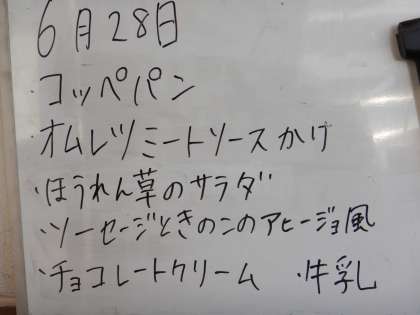 6月28日
・コッペパン
・オムレツミートソースかけ
・ほうれん草のサラダ
・ソーセージときのこのアヒージョ風
・チョコレートクリーム ・牛乳